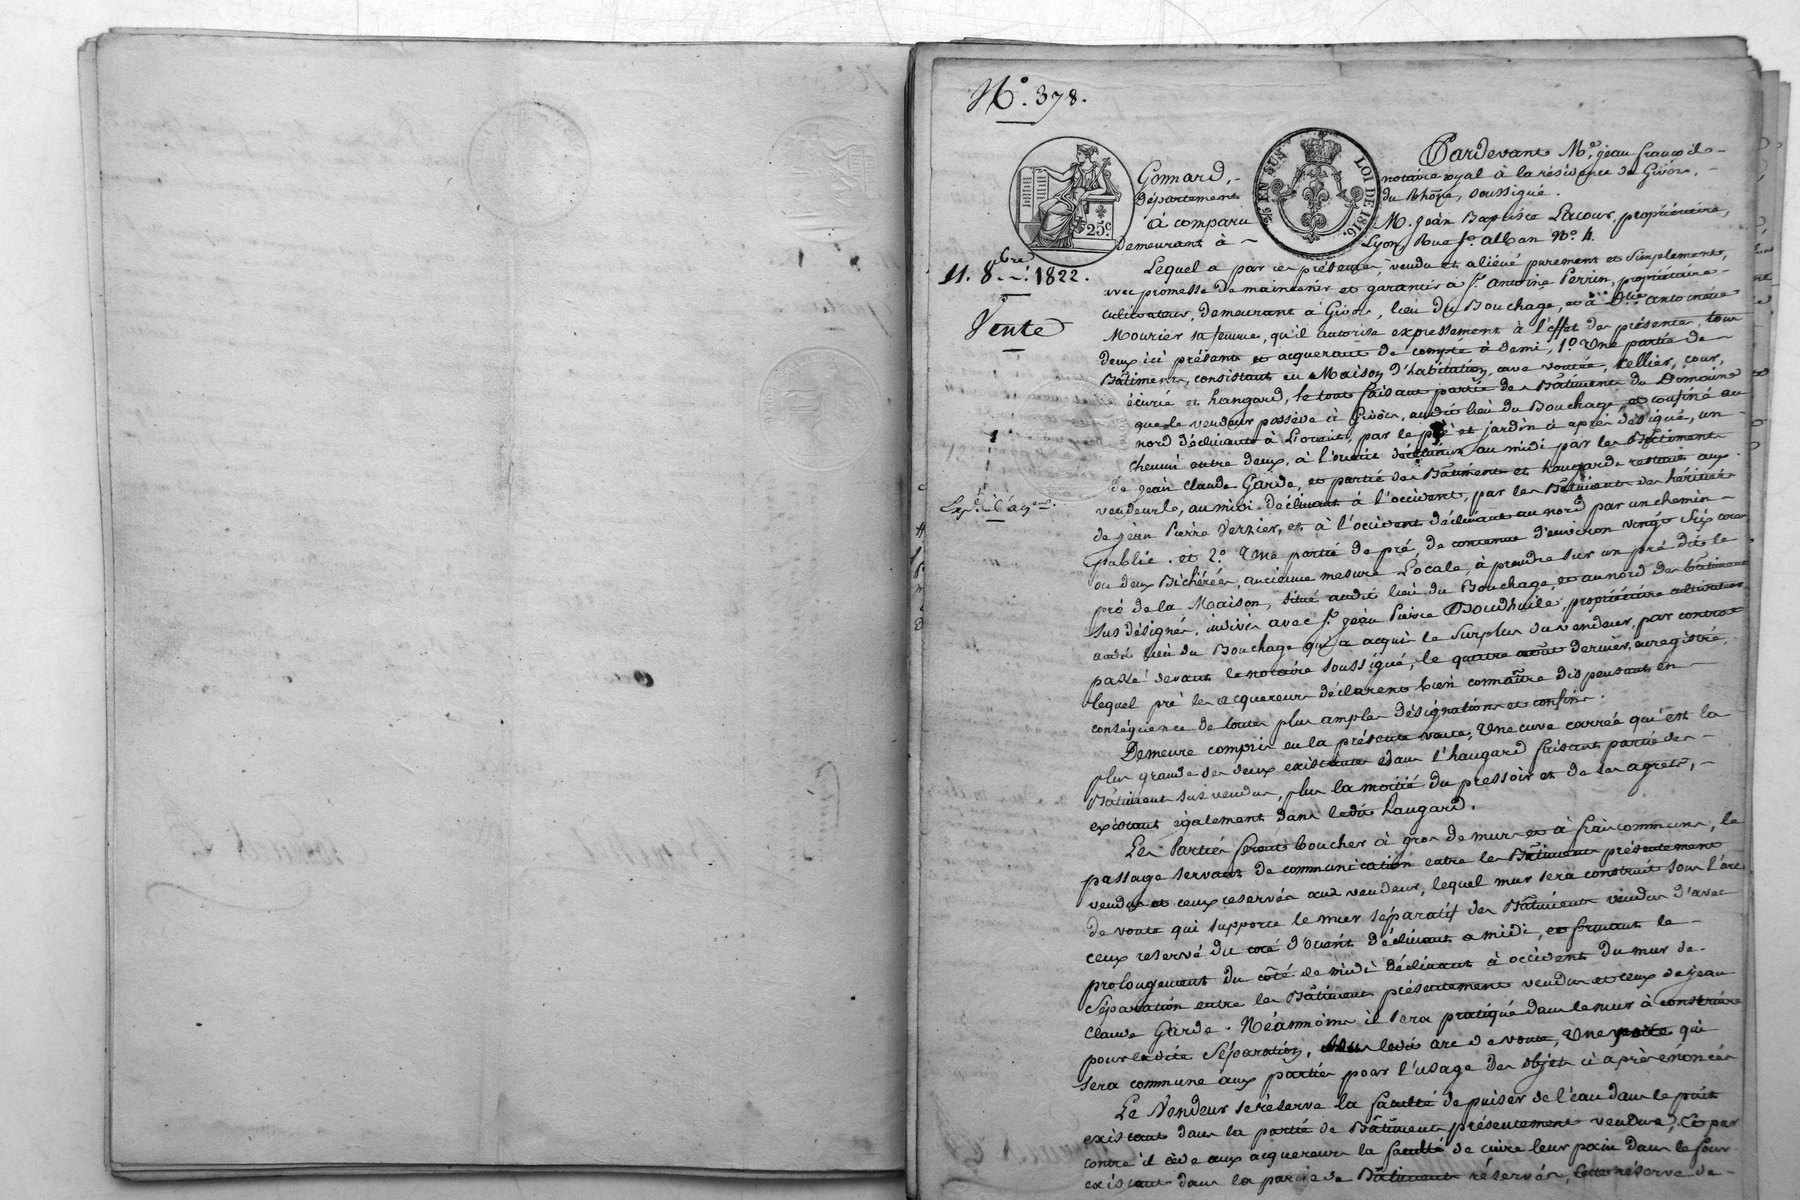 N.º 378.
25.c
5/c EN SUS
LOI DE 1816.
Pardevant M.e jean françois
Gonnard, notaire royal à la résidence de Givors,
département du Rhône, soussigné.
à comparu M. Jean Baptiste Lacour, propriétaire,
demeurant à Lyon, Rue St. alban N.º 4.
11. 8bre. 1822.
Vente
Lequel a par ces présentes, vendu et aliéné purement et simplement,
avec promesse de maintenir et garantir à Sr. antoine Perrin, propriétaire
cultivateur, demeurant à Givors, lieu du Bouchage, et à antoinette
Mourier sa femme, qu'il autorise expressément à l'effet des présentes, tous
deux ici présents et acquerant de compte à demi, 1.º Une partie de
Bâtiments, consistant en Maison d'habitation, cave voutée, cellier, cour,
écurie et hangard, le tout faisant partie des Bâtiments du Domaine
que le vendeur possède à Givors, audit lieu du Bouchage et confiné au
nord déclinant à Lorient, par le pré et jardin ci après désigné, un
chemin entre deux, à l'orient déclinant au midi par les Bâtiments
de jean Claude Garde, et partie des Bâtiments et hangards restant aux
vendeurs, au midi déclinant à l'occident, par les Bâtiments des héritiers
de jean Pierre Verzier, et à l'occident déclinant au nord par un chemin
public. et 2.º Une partie de pré, de contenue d'environ vingt six ares
ou deux Bicherées, ancienne mesure Locale, à prendre sur un pré dit le
pré de la Maison, situé audit lieu du Bouchage, et au nord des bâtiments
sus désignés, indivis avec Sr. jean Pierre propriétaire cultivateur
audit lieu du Bouchage qui a acquis le surplus du vendeur, par contrat
passé devant le notaire soussigné, le quatre août dernier, enregistré,
lequel pré les acquereurs déclarent bien connaître dispensant en
conséquence de toutes plus amples désignations et confins.
Demeure compris en la présente vente, Une cuve carrée qui est la
plus grande des deux existantes dans l'hangard faisant partie des
Bâtiments sus vendus, plus la moitié du pressoir et de ses agrets,
existant également dans ledit hangard.
Les Parties feront boucher à gros de murs et à frais communs, le
passage servant de communication entre les Bâtiments présentement
vendus et ceux reservés aux vendeur, lequel mur sera construit sous l'arc
de voute qui supporte le mur séparatif des Bâtiments vendus d'avec
ceux reservé du coté d'orient déclinant a midi, et suivant le
prolongement du côté de midi déclinant à occident du mur de
séparation entre les Bâtiments présentement vendus et ceux de jean
Claude Garde. Néanmoins il sera pratiqué dans le mur à construire
pour ladite séparation, ledit arc de voute, Une porte qui
sera commune aux parties pour l'usage des objets ci après énoncés
Le Vendeur se réserve la faculté de puiser de l'eau dans le puit
existant dans la partie de Bâtiments présentement vendue, Et par
contre il cède aux acquereurs la faculté de cuire leur pain dans le four
existant dans la partie de Bâtiments réservés, cette réserve de